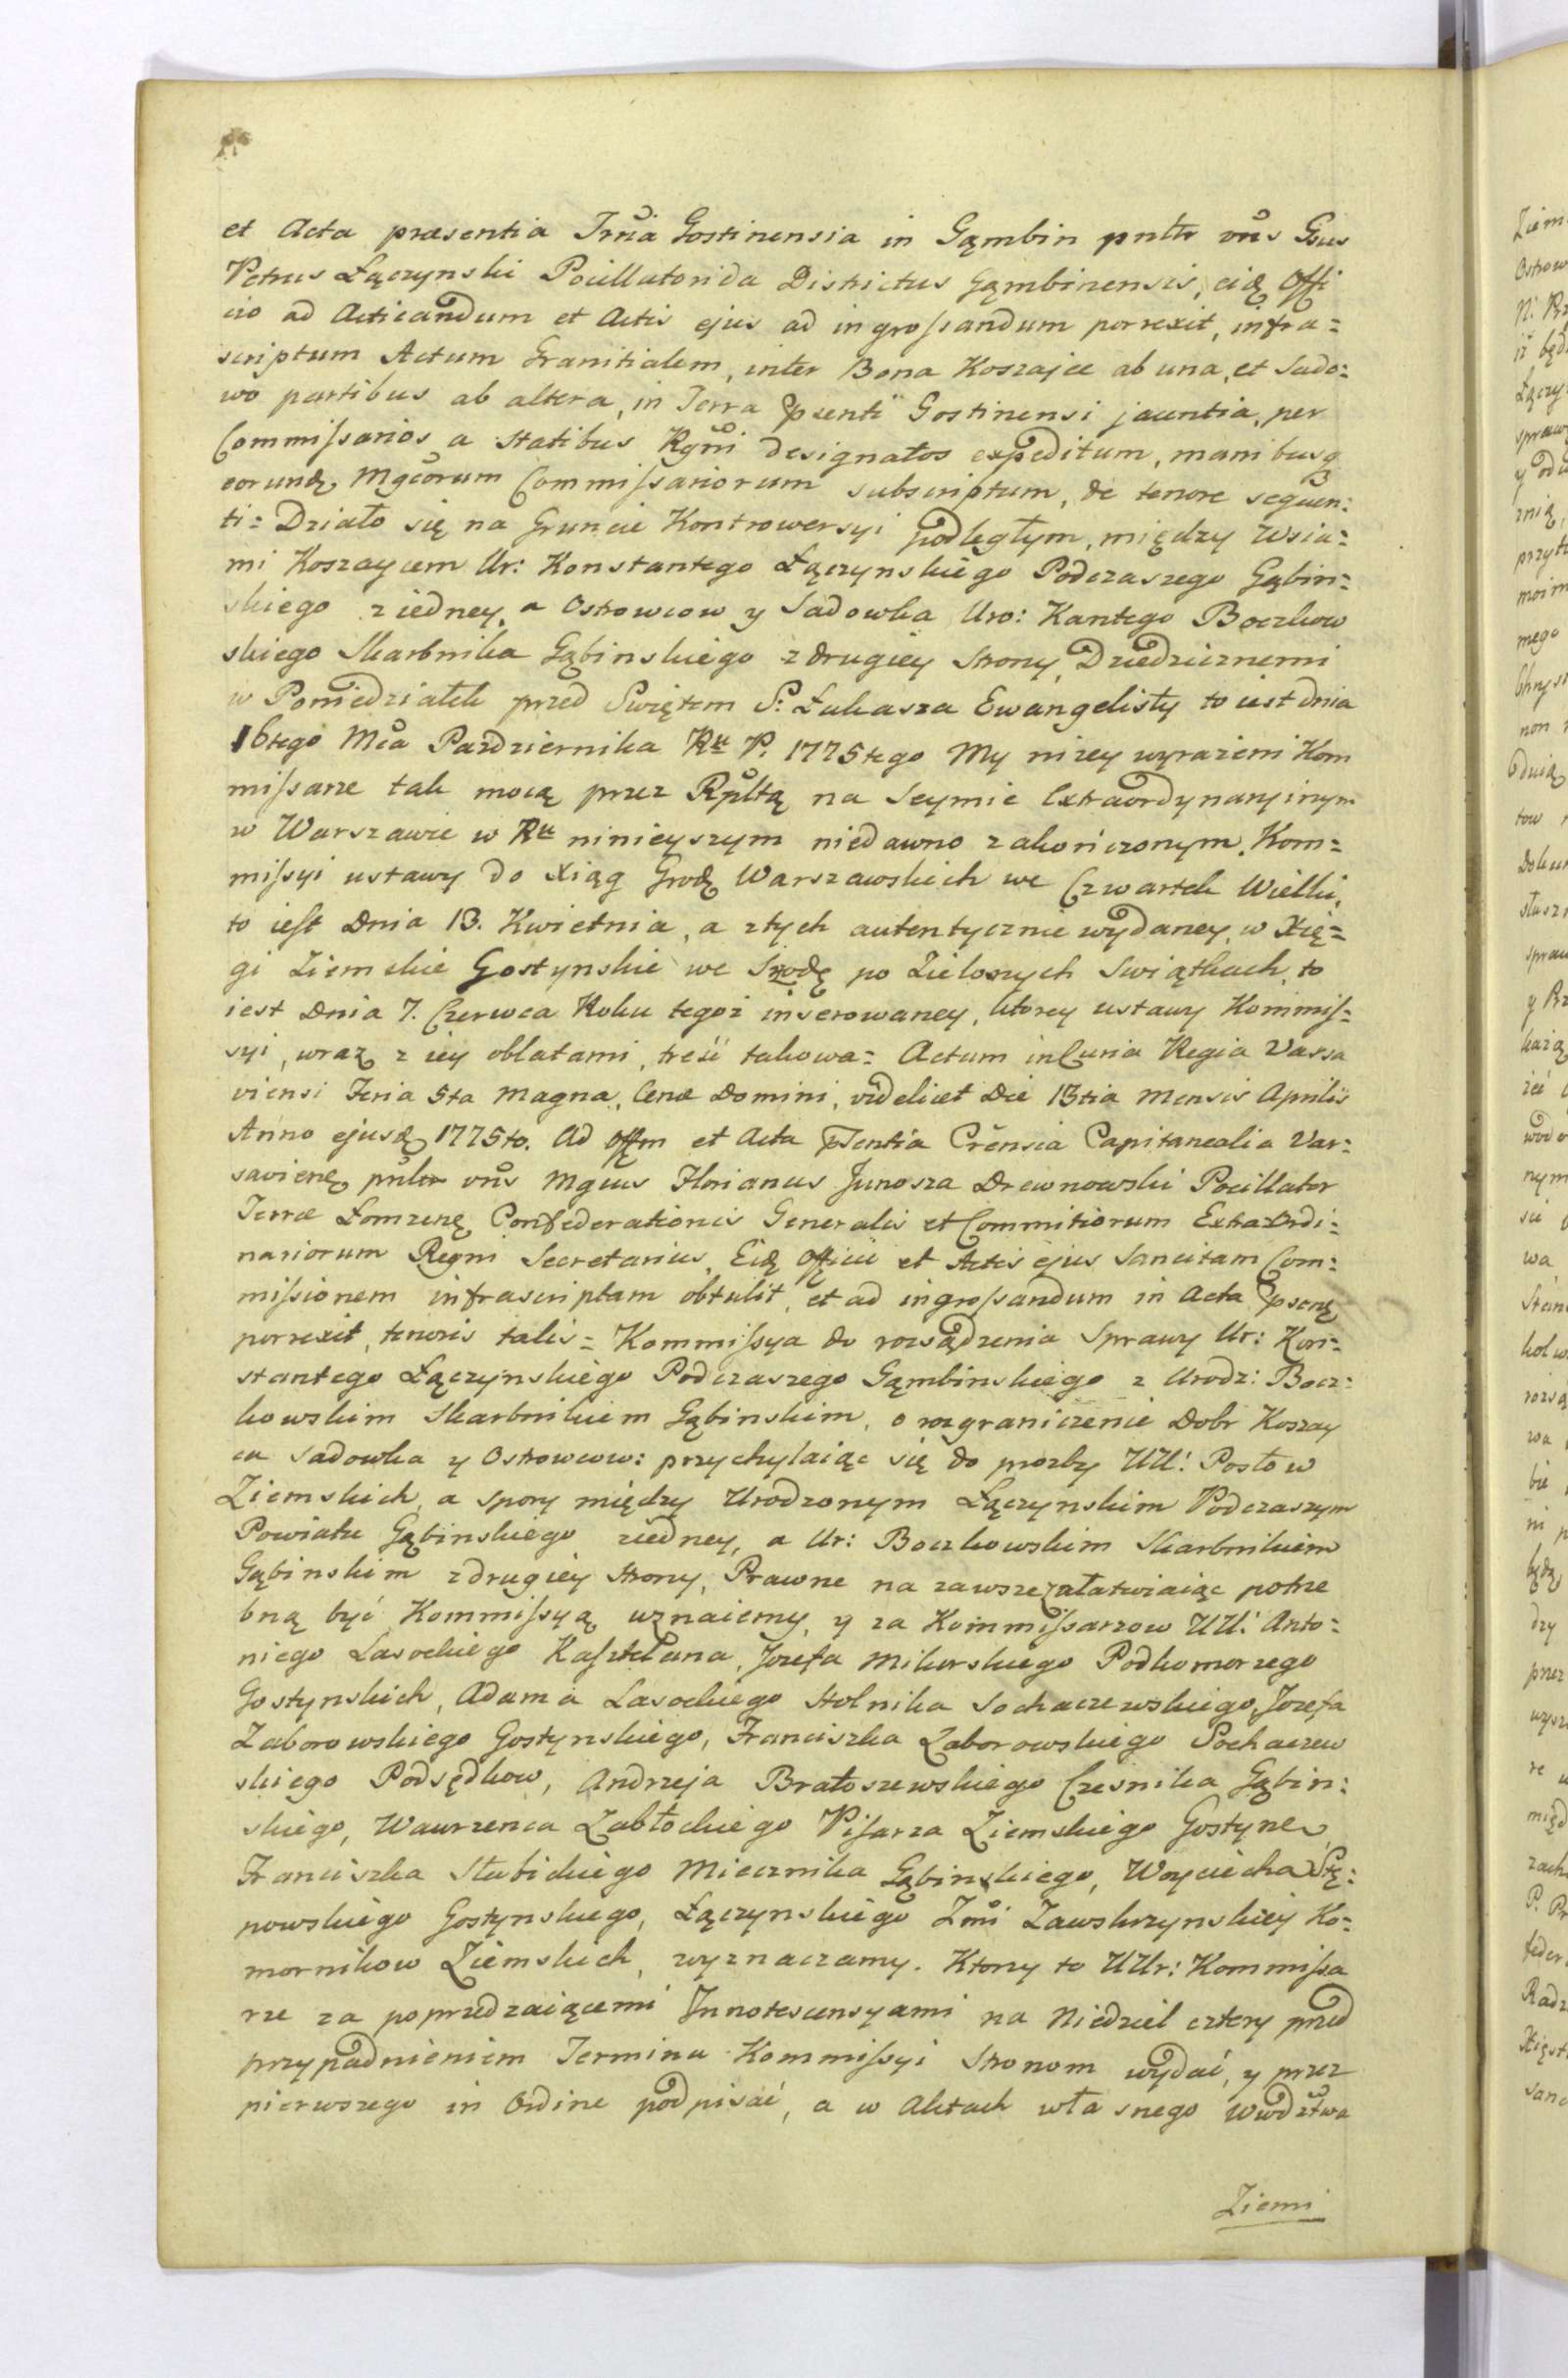 et Acta præsentia Trña Gostinensia in Gąmbin pnltr vñs Gsus
Petrus Łączynski Pocillatorida Districtus Gąmbinensis, eidę Offi
cio ad Acticandum et Actis ejus ad ingrossandum porrexit, infra=
scriptum Actum Granitialem, inter Bona Koszajce ab una, et Sado=
wo partibus ab altera, in Terra psenti Gostinensi jacentia, per
Commissarios a Statibus Rgñi designatos expeditum, manibusq
eorundę Mgcorum Commissariorum subscriptum, de tenore sequen=
ti= Działo się na Gruncie Kontrowersyi podległym, między Wsia=
mi Koszaycem Ur: Konstantego Łączynskiego Podczaszego Gąbin=
skiego z iedney, a Ostrowcow y Sadowka Uro: Kantego Boczkow
skiego Skarbnika Gąbinskiego z drugiey Strony, Dziedzicznemi
w Poniedziałek przed Swiętem S: Łukasza Ewangelisty to iest dnia
16tego Mca Pazdziernika Rku P. 1775tego My nizey wyrażeni Kom
missarze tak mocą przez Rpltą na Seymie Extraordynaryinym
w Warszawie w Rku ninieyszym niedawno zakończonym, Kom=
missyi ustawy do Xiąg Grodz Warszawskich we Czwartek Wielki,
to iest Dnia 13. Kwietnia, a ztych autentycznie wydaney, w Xię=
gi Ziemskie Gostynskie we Srzodę po Zielonych Swiątkach, to
iest Dnia 7. Czerwca Roku tegoż inserowaney, ktorey ustawy Kommis=
syi, wraz z iey oblatami, treść takowa= Actum in Curia Regia Varsa
viensi Feria 5ta Magna, Cenæ Domini, videlicet Die 13tia Mensis Aprilis
Anno ejusdę 1775to. Ad Offm et Acta psentia Crensia Capitanealia Var=
savienę pnltr vñs Mgnus Florianus Junosza Drewnowski Pocillator
Terræ Łomzenę Confederationis Generalis et Commitiorum Extraordi=
nariorum Regni Secretarius, Eidę Officii et Actis ejus Sancitam Com=
missionem infrascriptam obtulit, et ad ingrossandum in Acta psenę
porrexit, tenoris talis= Kommissya do rozsądzenia Sprawy Ur: Kon=
stantego Łączynskiego Podczaszego Gąmbinskiego z Urodz: Bocz=
kowskim Skarbnikiem Gąbinskim, o rozgraniczenie Dobr Koszay
ca Sadowka y Ostrowcow: przychylaiąc się do prozby UU: Posłow
Ziemskich, a spory między Urodzonym Łączynskim Podczaszym
Powiatu Gąbinskiego ziedney, a Ur: Boczkowskim Skarbnikiem
Gąbinskim z drugiey Strony, Prawne na zawsze załatwiaiąc potrze
bną być Kommissyą uznaiemy, y za Kommissarzow UU: Anto=
niego Lasockiego Kasztelana, Jozefa Mikorskiego Podkomorzego
Gostynskich, Adama Lasockiego Stolnika Sochaczewskiego, Jozefa
Zaborowskiego Gostynskiego, Franciszka Zaborowskiego Sochaczew
skiego Podsędkow, Andrzeja Bratoszewskiego Czesnika Gąbin=
skiego, Wawrzenca Zabłockiego Pisarza Ziemskiego Gostyne
Franciszka Słubickiego Miecznika Gąbinskiego, Woyciecha Stę=
powskiego Gostynskiego, Łączynskiego Zmi Zawskrzynskiey Ko=
mornikow Ziemskich, wyznaczamy. Ktorzy to UUr: Kommissa
rze za poprzedzaiącemi Innotescensyami na Niedziel cztery przed
przypadnieniem Terminu Kommissyi Stronom wydać, y przez
pierwszego in Ordine podpisać, a w Aktach własnego Wwdztwa
Ziemi